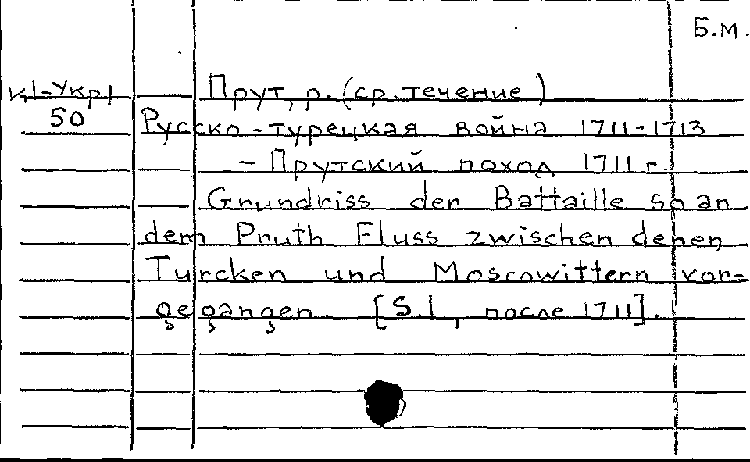 Б.м.
К1-Укр1
50
Прут, р. (ср. течение)
Русско-турецкая война 1711-1713
- Прутский поход 1711 г.
Grundriss der Battaille so an
dem Pruth Fluss zwischen denen
Turcken und Moscowittern vor=
gegangen [S.l., после 1711].